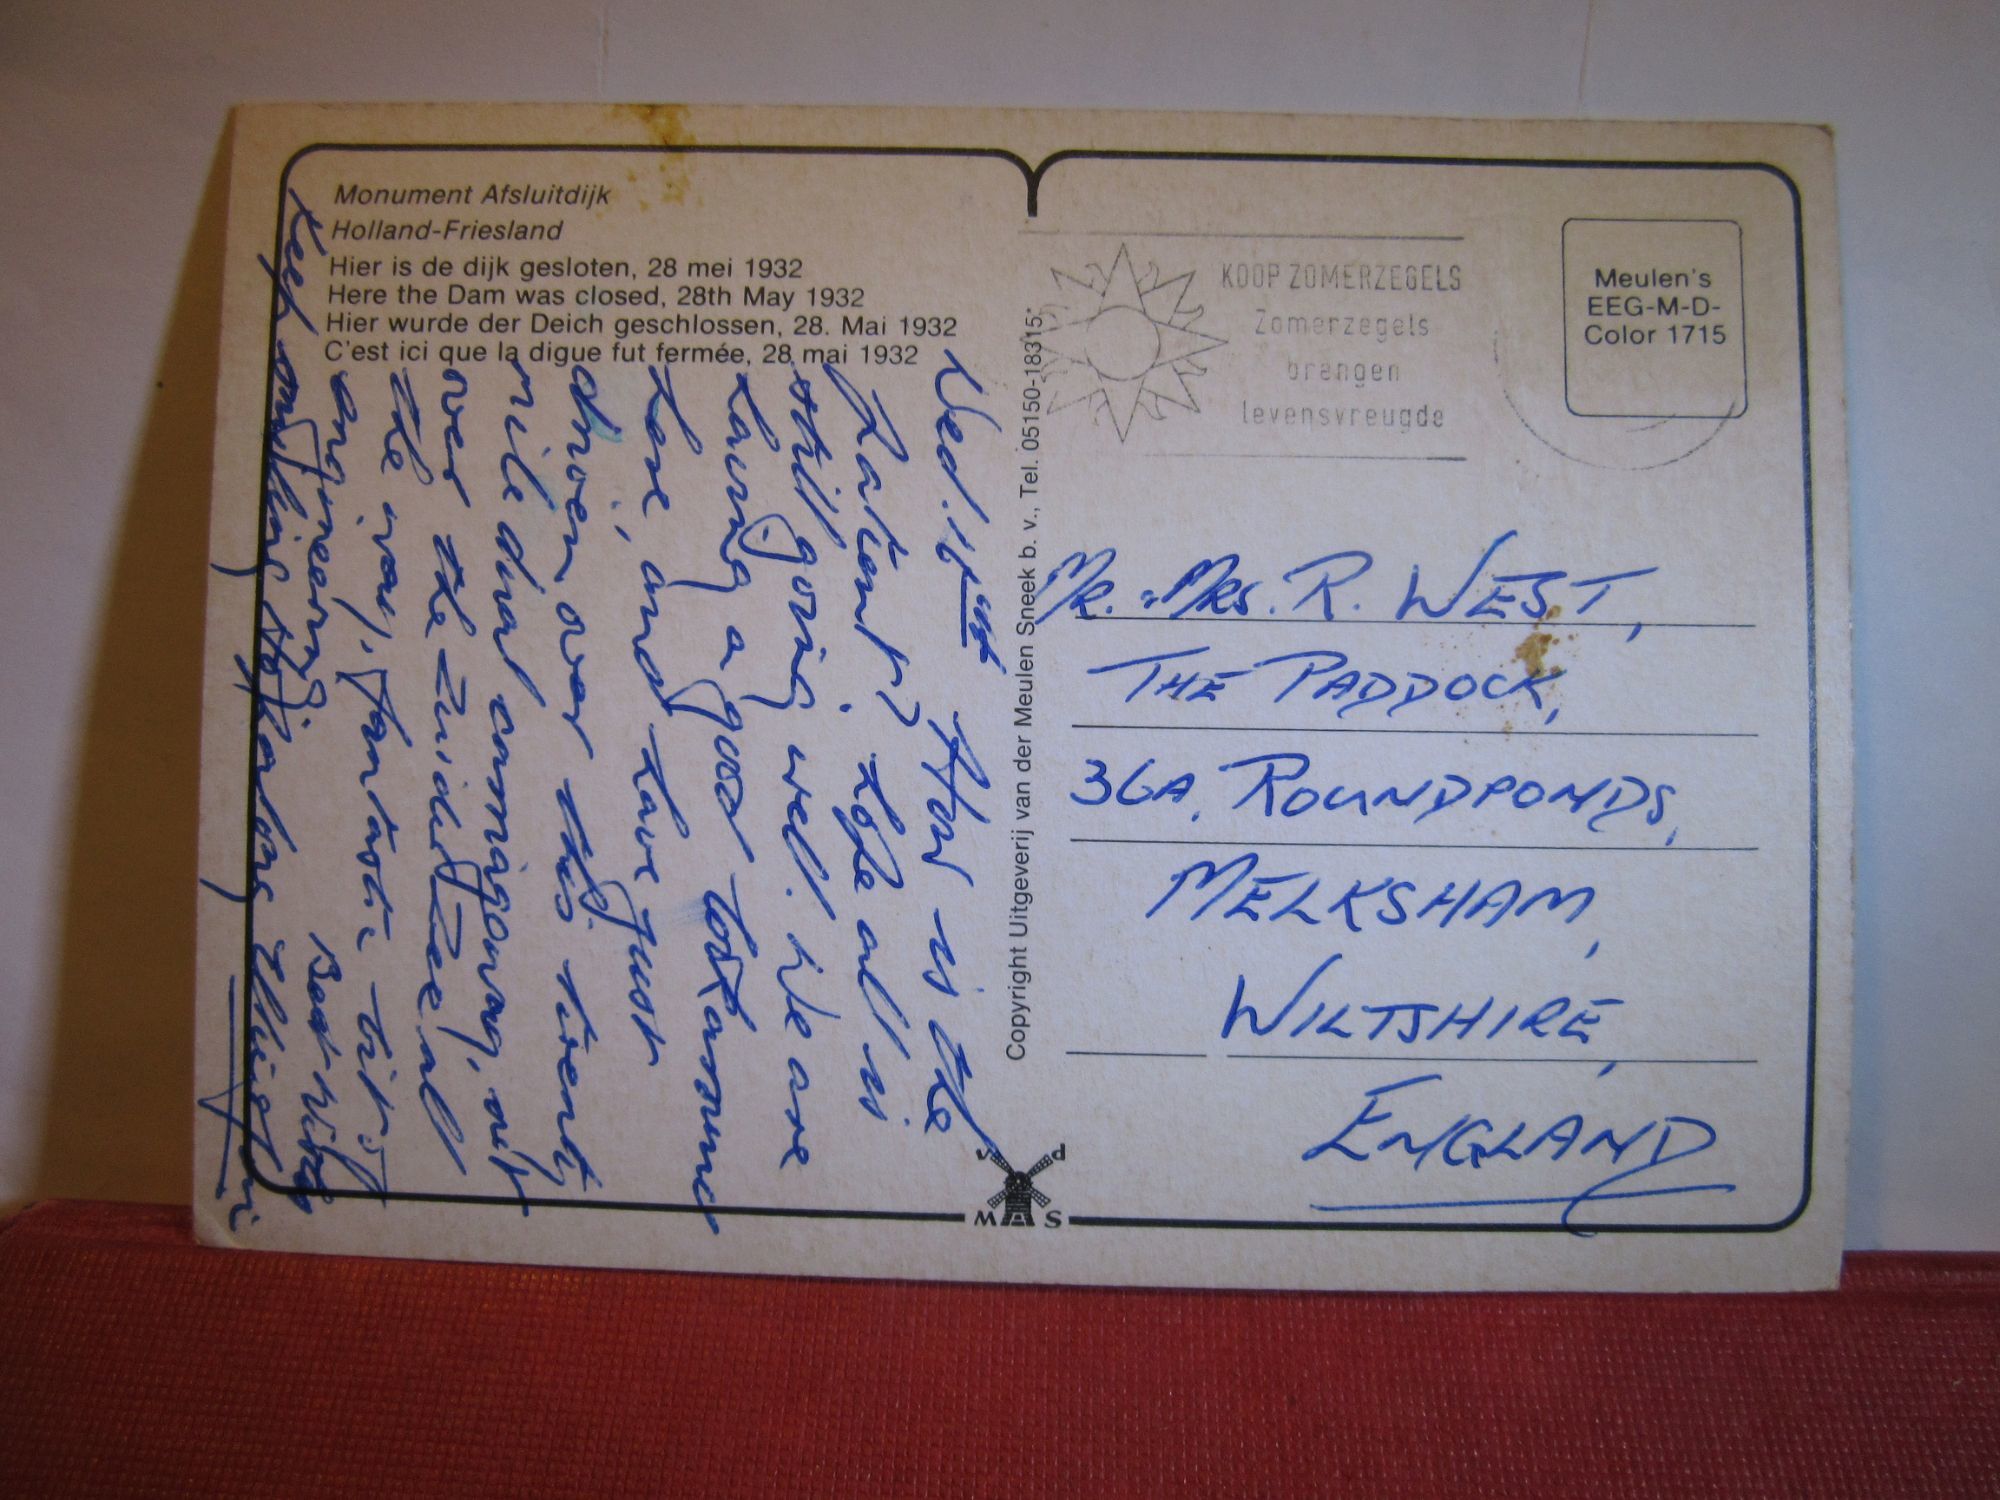 Monument Afsluitdijk
Holland-Friesland
Hier is de dijk gesloten, 28 mei 1932
Here the Dam was closed, 28th May 1932
Hier wurde der Deich geschlossen, 28. Mai 1932
C'est ici que la digue fut fermée, 28 mai 1932
Wed. How is the
Patient? Hope all is
still going well. We are
having a good
here, and have just
driven over this twenty
mile dual carriageway, out
over the Zuider Zee all
the way. Fantastic bit of
engineering.
Best Wishes
Keep smiling
Copyright Uitgeverij van der Meulen Sneek b. v., Tel. 05150-18315*
v d
M S
KOOP ZOMERZEGELS
Zomerzegels
brengen
levensvreugde
Meulen's
EEG-M-D-
Color 1715
Mr. & Mrs. R. WEST,
THE PADDOCK,
36A, ROUNDPONDS,
MELKSHAM,
WILTSHIRE,
ENGLAND